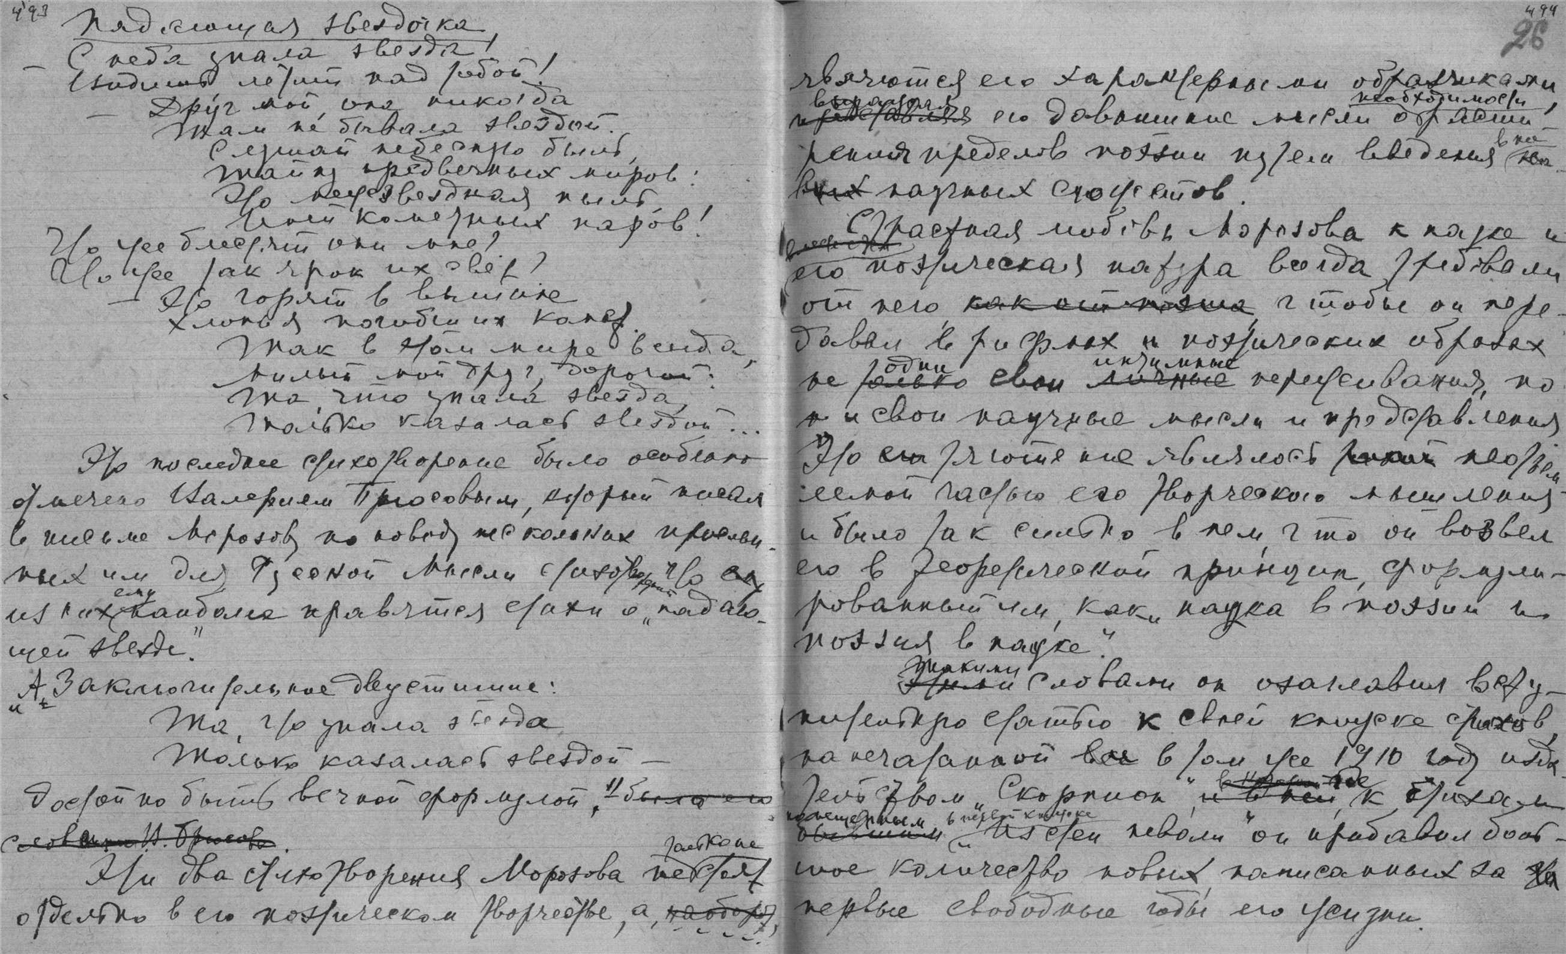 493
Падающая звездочка
— С неба упала звезда!
Видишь летит над тобой!
— Друг мой, она никогда
Там не бывала звездой.
Слушай небесную быль,
Тайну предвечных миров:
То межзвездная пыль,
Иней кометных паров!
Что же блестят они мне?
Что же так ярок их свет?
— То горят в вышине
Хлопья погибших комет.
Так в этом мире всегда,
Милый мой друг, дорогой:
Та, что упала звезда,
Только казалась звездой...
Это последнее стихотворение было особенно
отмечено Валерием Брюсовым, который писал
в письме Морозову по поводу нескольких прислан-
ных им для Русской Мысли стихотворений, что
из них ему наиболее нравятся стихи о „падаю-
щей звезде."
„А заключительное двустишие:
Та, что упала звезда
Только казалась звездой —
достойно быть вечной формулой", было его
словами В. Брюсова.
Эти два стихотворения Морозова не стоят
отдельно в его поэтическом творчестве, а, наоборот,
494
26
являются его характерными образчиками,
выражая его давнишние мысли о необходимости
рения пределов поэзии путем введения в нее
научных сюжетов.
Страстная любовь Морозова к науке и
его поэтическая натура всегда требовали
от него, как от поэта, чтобы он пере-
давал в рифмах и поэтических образах
не одни свои интимные личные переживания, но
и свои научные мысли и представления.
Это тяготение являлось неотъем-
лемой частью его творческого мышления
и было так сильно в нем, что он возвел
его в теоретический принцип, формули-
рованный им, как „наука в поэзии и
поэзия в науке".
Такими словами он озаглавил всту-
пительную статью к своей книжке стихов,
напечатанной в том же 1910 году изда-
тельством „Скорпион", где к стихам
помещенным в первой книжке „Из стен неволи" он прибавил боль-
шое количество новых, написанных за
первые свободные годы его жизни.